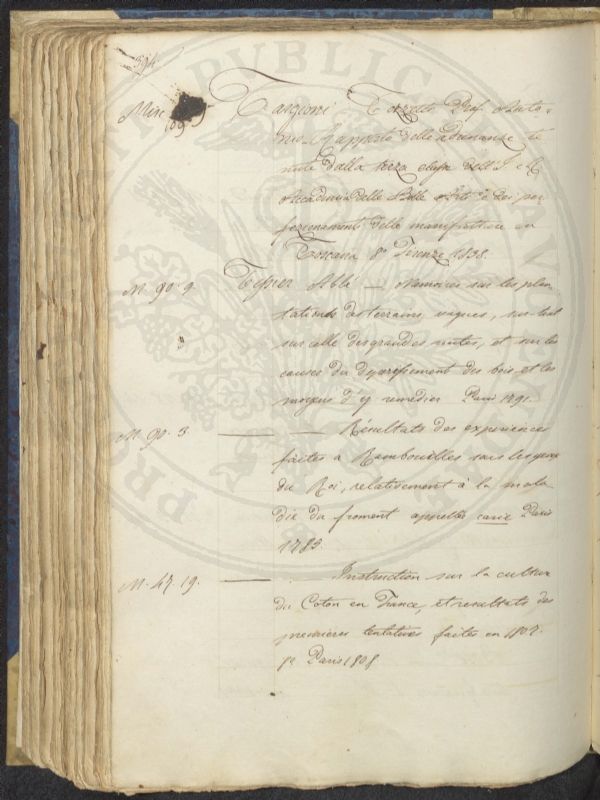 394
Misc
109
Targioni Tozzetti Prof. Anto-
nio Rapporto delle adunanze te
nute dalla terza classe dell'I. e R.
Accademia delle Belle Arti e dei per
fezionamenti delle manifatture in
Toscana 8° Firenze 1838.
M. 90. 9. Tessier Abbé — Memoires sur les plan
tations des terrains vagues, sur-tout
sur celle des grandes routes, et sur les
causes du deparissement des bois et les
moyens d'y remedier Paris 1791.
M. 90. 3. — Résultats des experiences
faites à Rambouilles sous les yeux
du Roi, relativement à la mala
die du froment appellée carie Paris
1785.
M. 47. 19. — Instruction sur la culture
du Coton en France, et resultats des
premières tentatives faites en 1807.
8° Paris 1808